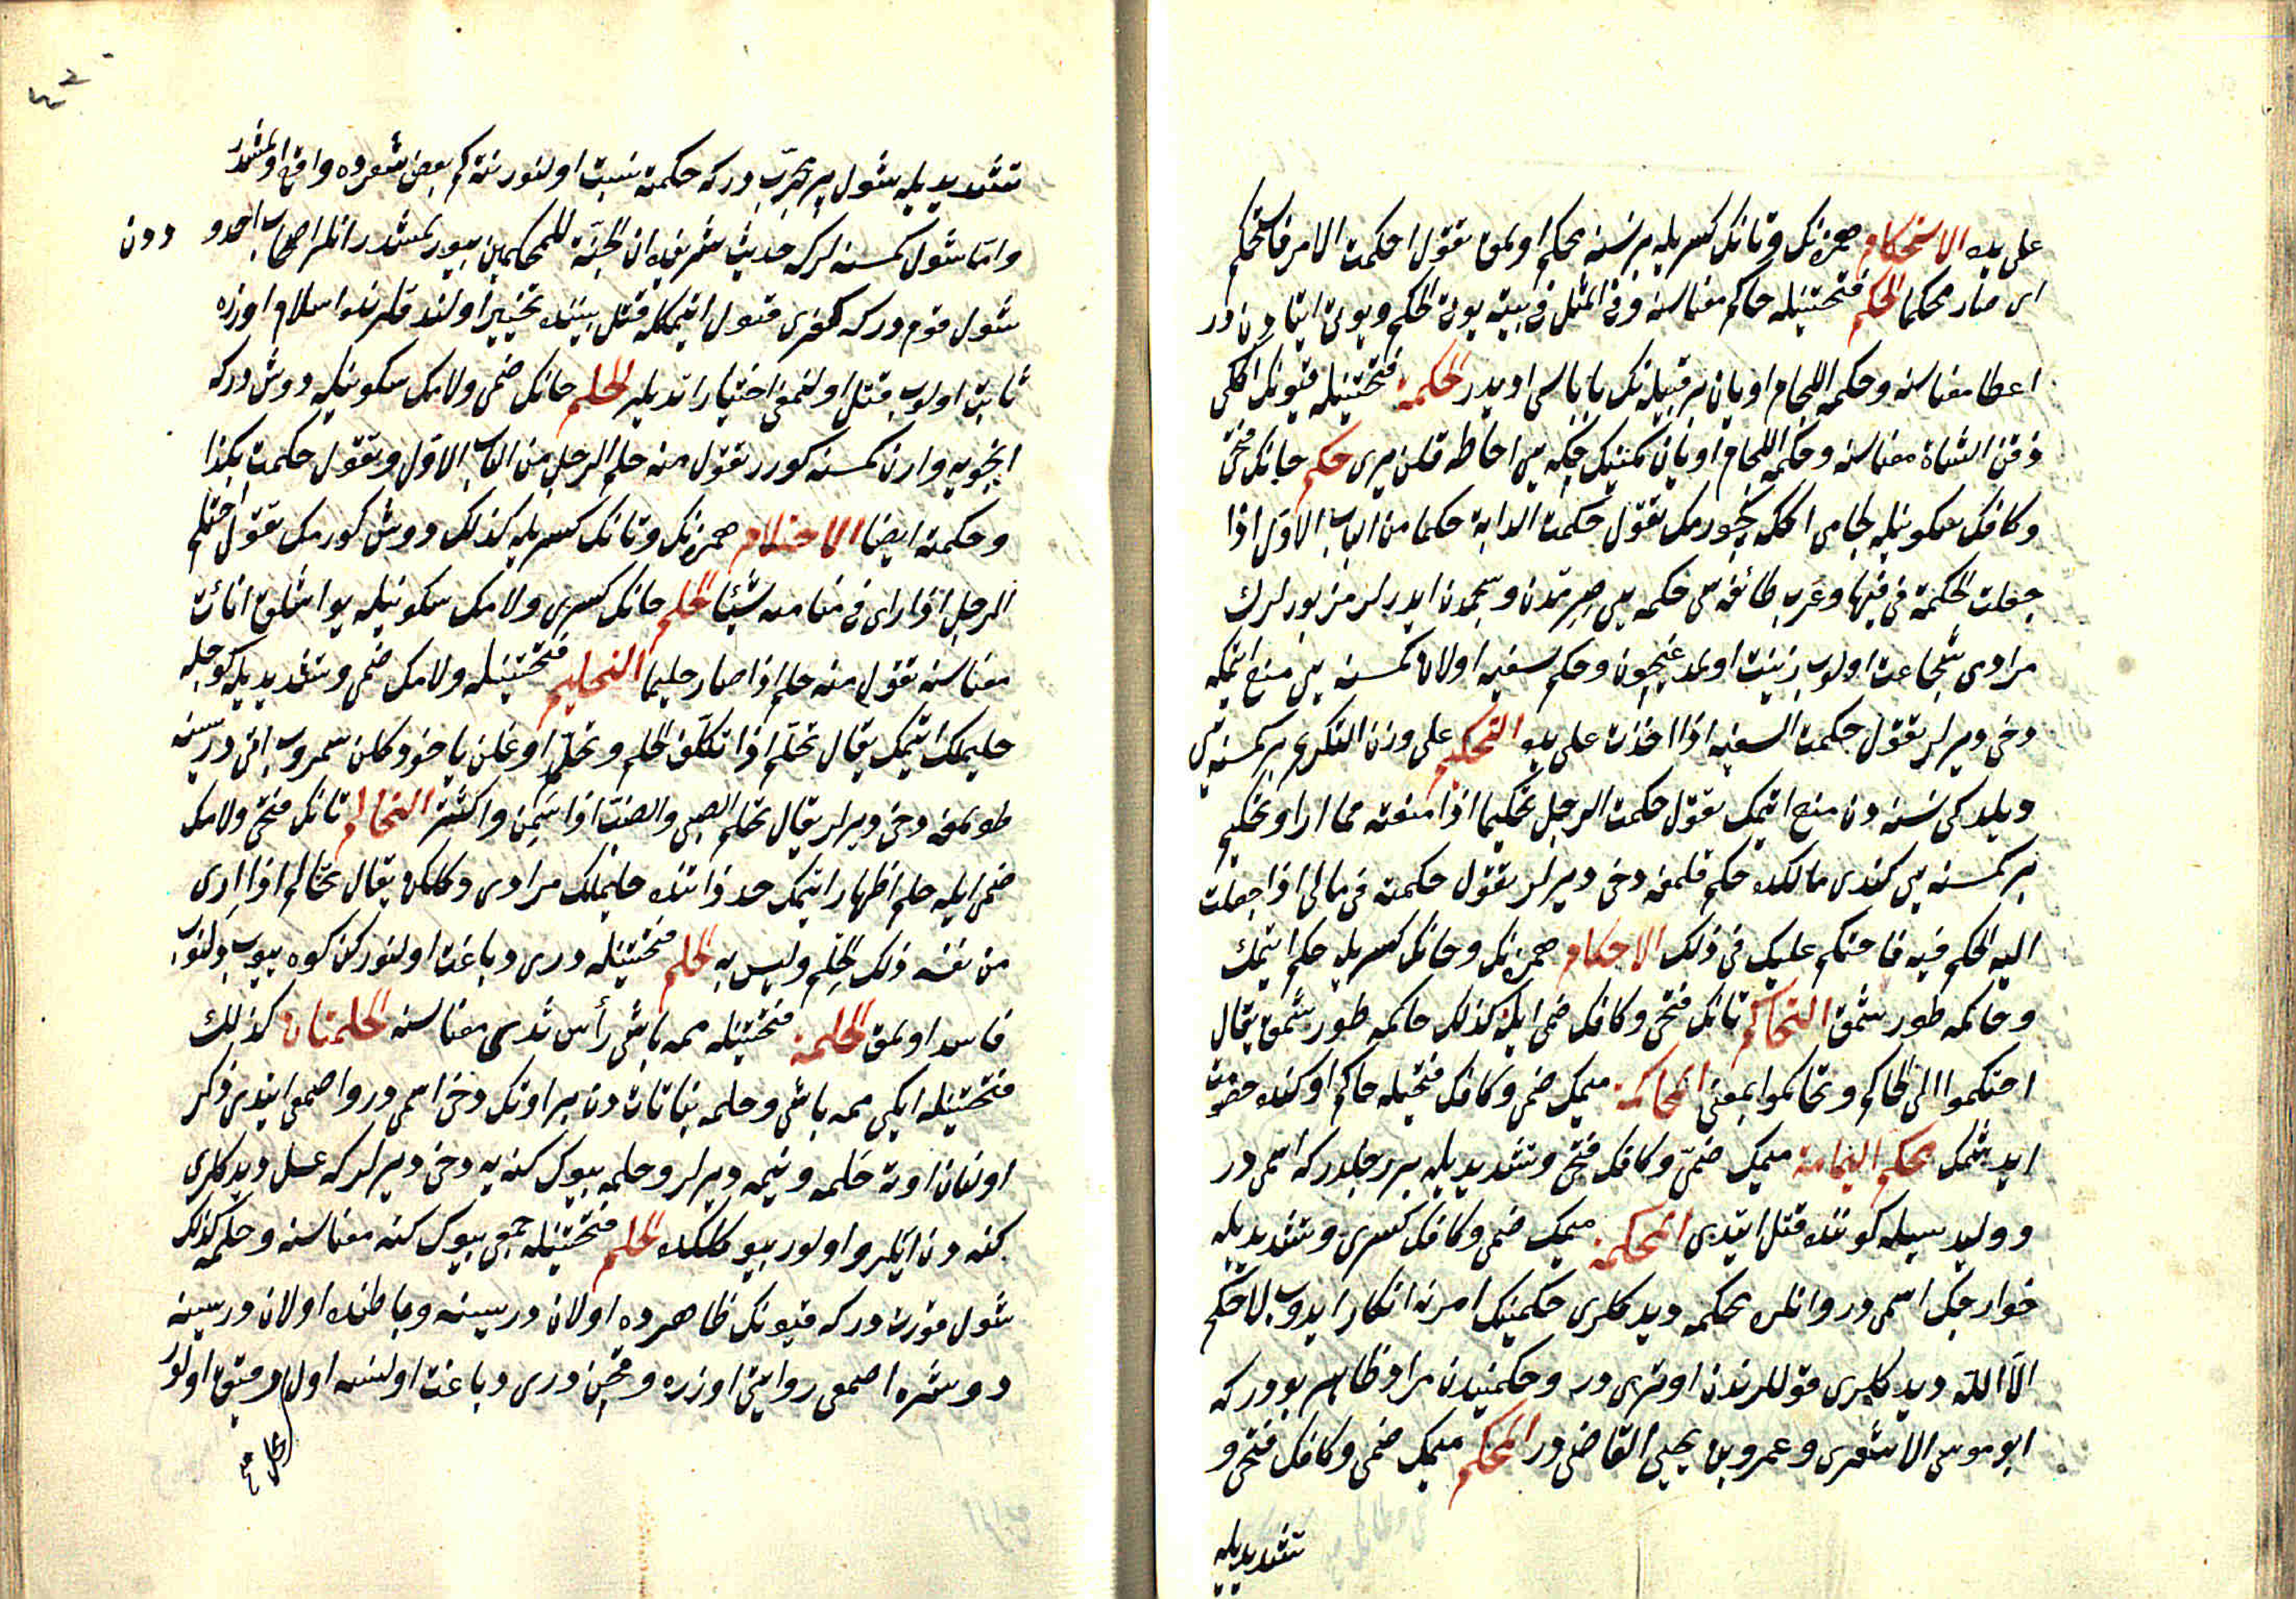 على يده الاستحكام همزه‌نك و تانك كسريله بر نسنه محكم اولمق تقول احكمت الامر فاستحكم
اى صار محكما الحكم فتحتينله حاكم معناسنه وفى المثل فى بيته يؤتى الحكم ويؤتى ايتا دن در
اعطا معناسنه وحكمه اللجام اويان بر قبيله‌نك باباسى اديدر الحكمة فتحتينله قيونك اكك
ذقن الشاة معناسنه وحكمه اللجام اويان كمينك چكه‌يى احاطه قلن يرى حكم حانك فتحى
وكافك سكونيله لجامى اكك كچورمك تقول حكمت الدابة حكما من الباب الاول اذا
جعلت الحكمة فى فيها وعرب طائفه‌سى حكمه‌يى صيرمدن وسجمدن ايدرلر مزبورلرك
مرادى شجاعت اولوب زينت اولمدغيچون وحكم سفيه اولان كمسنه‌يى منع ايتمكه
دخى ديرلر تقول حكمت السفيه اذا اخذت على يده التحكيم على وزن التكريم بر كمسنه‌يى
ديلدكى نسنه دن منع ايتمك تقول حكمت الرجل تحكيما اذا منعته مما اراد وتحكيم
بر كمسنه‌يى كندى مالنده حكم قلمغه دخى ديرلر تقول حكمته فى مالى اذا جعلت
اليه الحكم فيه فاحتكم عليك فى ذلك الاحكام همزه‌نك وحانك كسريله حكم ايتمك
وحاكمه طورشمق التحاكم تانك فتحى وكافك ضمى ايله كذلك حاكمه طورشمق يقال
احتكموا الى الحاكم وتحاكموا بمعنى المحاكمة ميمك ضمى وكافك فتحيله حاكم اوكنده خصومت
ايدشمك محكم اليمامة ميمك ضمى وكافك فتحى وتشديديله بر رجلدركه اسمى در
و وليد سيله كوننده قتل ايتدى المحكمة ميمك ضمى وكافك كسرى وتشديديله
خوارجك اسمى در وانلره محكمه ديدكلرى حكمينك امرنه انكار ايدوب لا حكم
الا الله ديدكلرى قوللرندن اوترى در وحكميندن مراد ظاهر بودركه
ابو موسى الاشعرى وعمرو بن يحيى القاضى در المحكم ميمك ضمى وكافك فتحى و
تشديديله
تشديديله شول پير مجرب دركه حكمته نسبت اولنور نته كم بعض شعرده واقع اولمشدر
واما شول كمسنه لركه حديث شريفده ان الجنة للمحكمين بيورلمشدر انلر اصحاب اخدود دن
شول قوم دركه كفرى قبول ايتمكله قتل بيننده تخيير اولندقلرنده اسلام اوزره
ثابت اولوب قتل اولنمغى اختيار ايتديلر الحلم حانك ضمى ولامك سكونيله دوش دركه
ايچويه وارن كمسنه كورر تقول منه حلم الرجل من الباب الاول وتقول حكمت بكذا
وحكمته ايضا الاحتلام همزه‌نك وتانك كسريله كذلك دوش كورمك تقول احتلم
الرجل اذا راى فى منامه شيئا الحلم حانك كسرى ولامك سكونيله يواشلق اناءت
معناسنه تقول منه حلم اذا صار حليما التحليم فتحتينله ولامك ضمى وتشديديله كوجله
حليملك ايتمك يقال تحلم اذا تكلف الحلم وتحلم اوغلن ياخود كلن سمروب اتى دريسنه
طولمغه دخى ديرلر يقال تحلم الصبى والضب اذا سمن واكتنز التحالم تانك فتحى ولامك
ضمى ايله حلم اظهار ايتمك حد ذاتنده حليملك مرادى دكلكن يقال تحالم اذا ارى
من نفسه ذلك الحلم وليس به الحلم فتحتينله درى دباغت اولنوركن كوه ييوب دلنوب
فاسد اولمق الحلمة فتحتينله ممه باشى رأس ثدى معناسنه الحلمتان كذلك
فتحتينله ايكى ممه باشى وحلمه نباتات دن بر اوتك دخى اسمى در واصمعى ايتدى ذكر
اولنان اوته حلمه وينمه ديرلر وحلمه بيوك كنه‌يه دخى ديرلركه عسل ديدكلرى
كنه دن ايلرو اولور بيوكلكده الحلم فتحتينله جمعى بيوك كنه معناسنه وحلمه كذلك
شول قورت دركه قيونك ظاهرده اولان دريسنه وباطنده اولان دريسنه
دوشره اصمعى روايتى اوزره وقچن درى دباغت اولنسه اول رقيق اولور